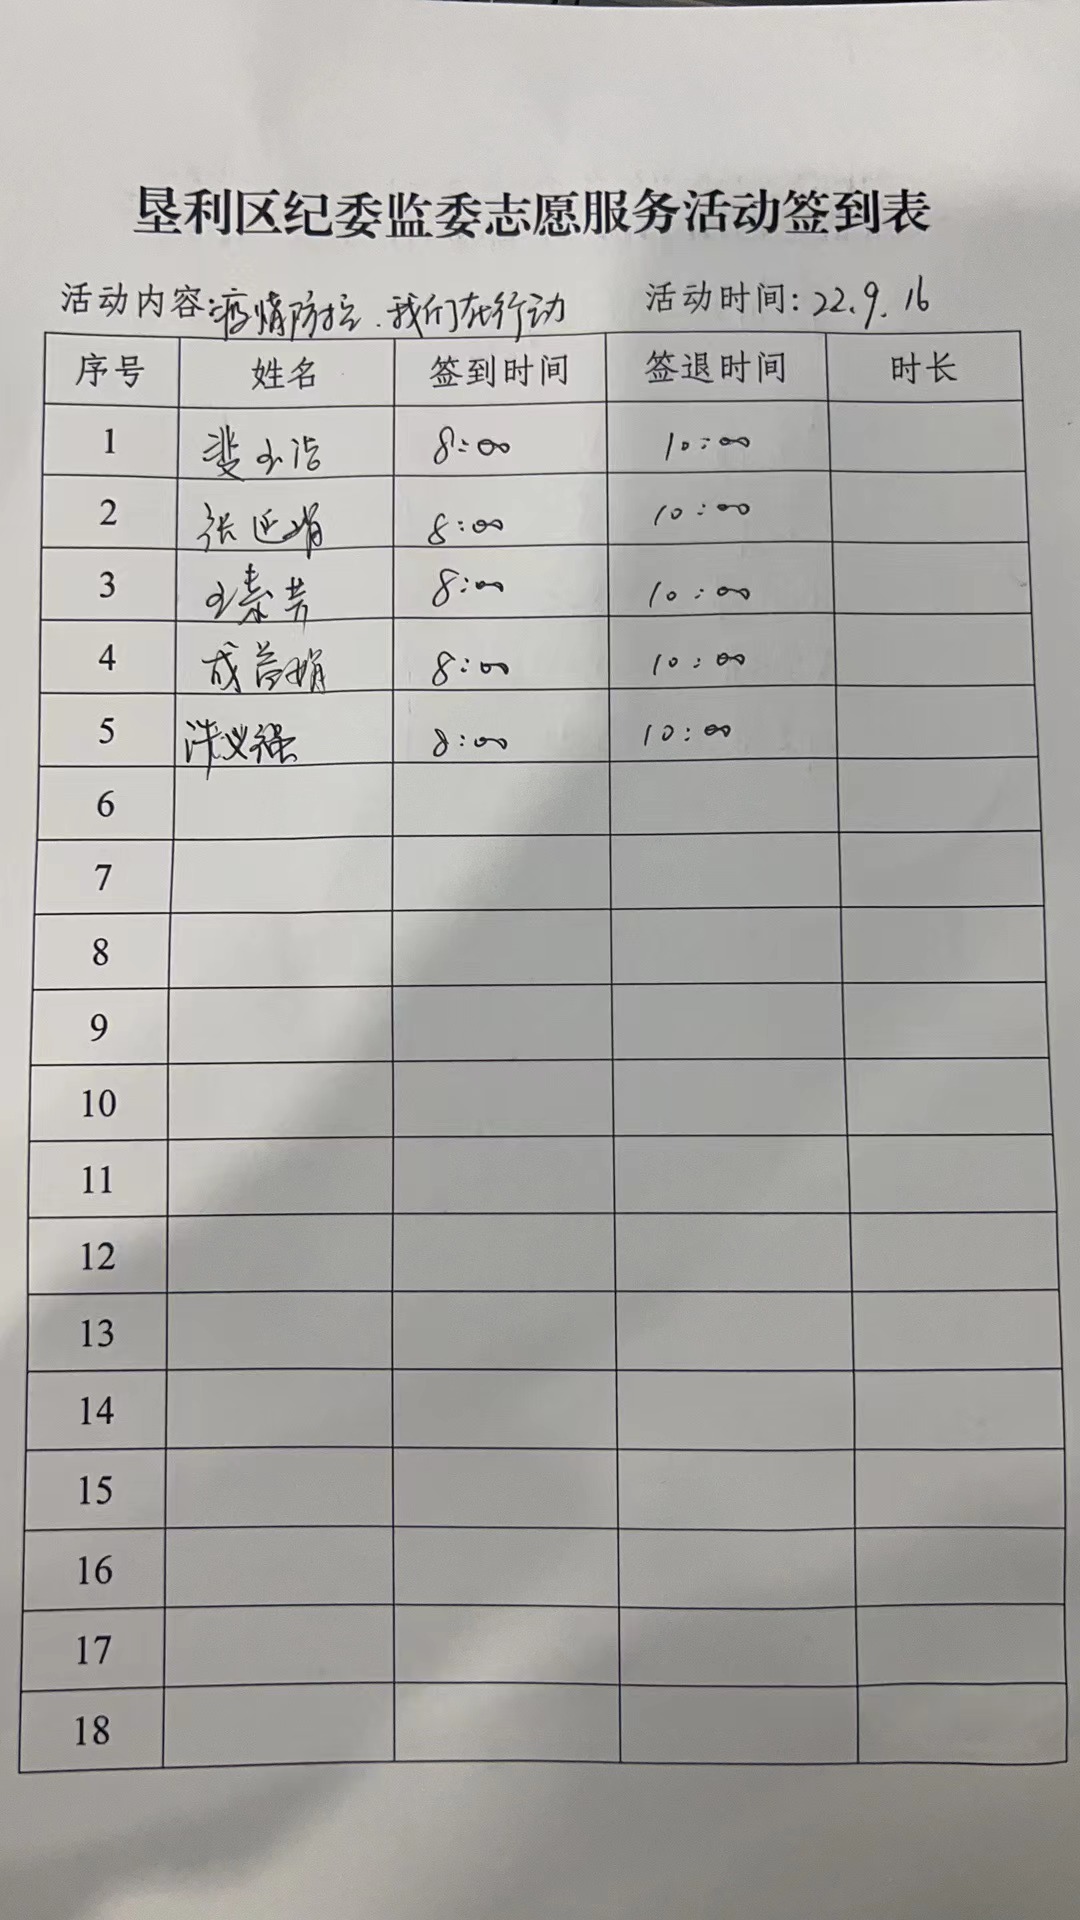 垦利区纪委监委志愿服务活动签到表
活动内容:疫情防控.我们在行动 活动时间:22.9.16
序号 姓名 签到时间 签退时间 时长
1 8:00 10:00
2 张延娟 8:00 10:00
3 王素芳 8:00 10:00
4 成 娟 8:00 10:00
5 义强 8:00 10:00
6
7
8
9
10
11
12
13
14
15
16
17
18